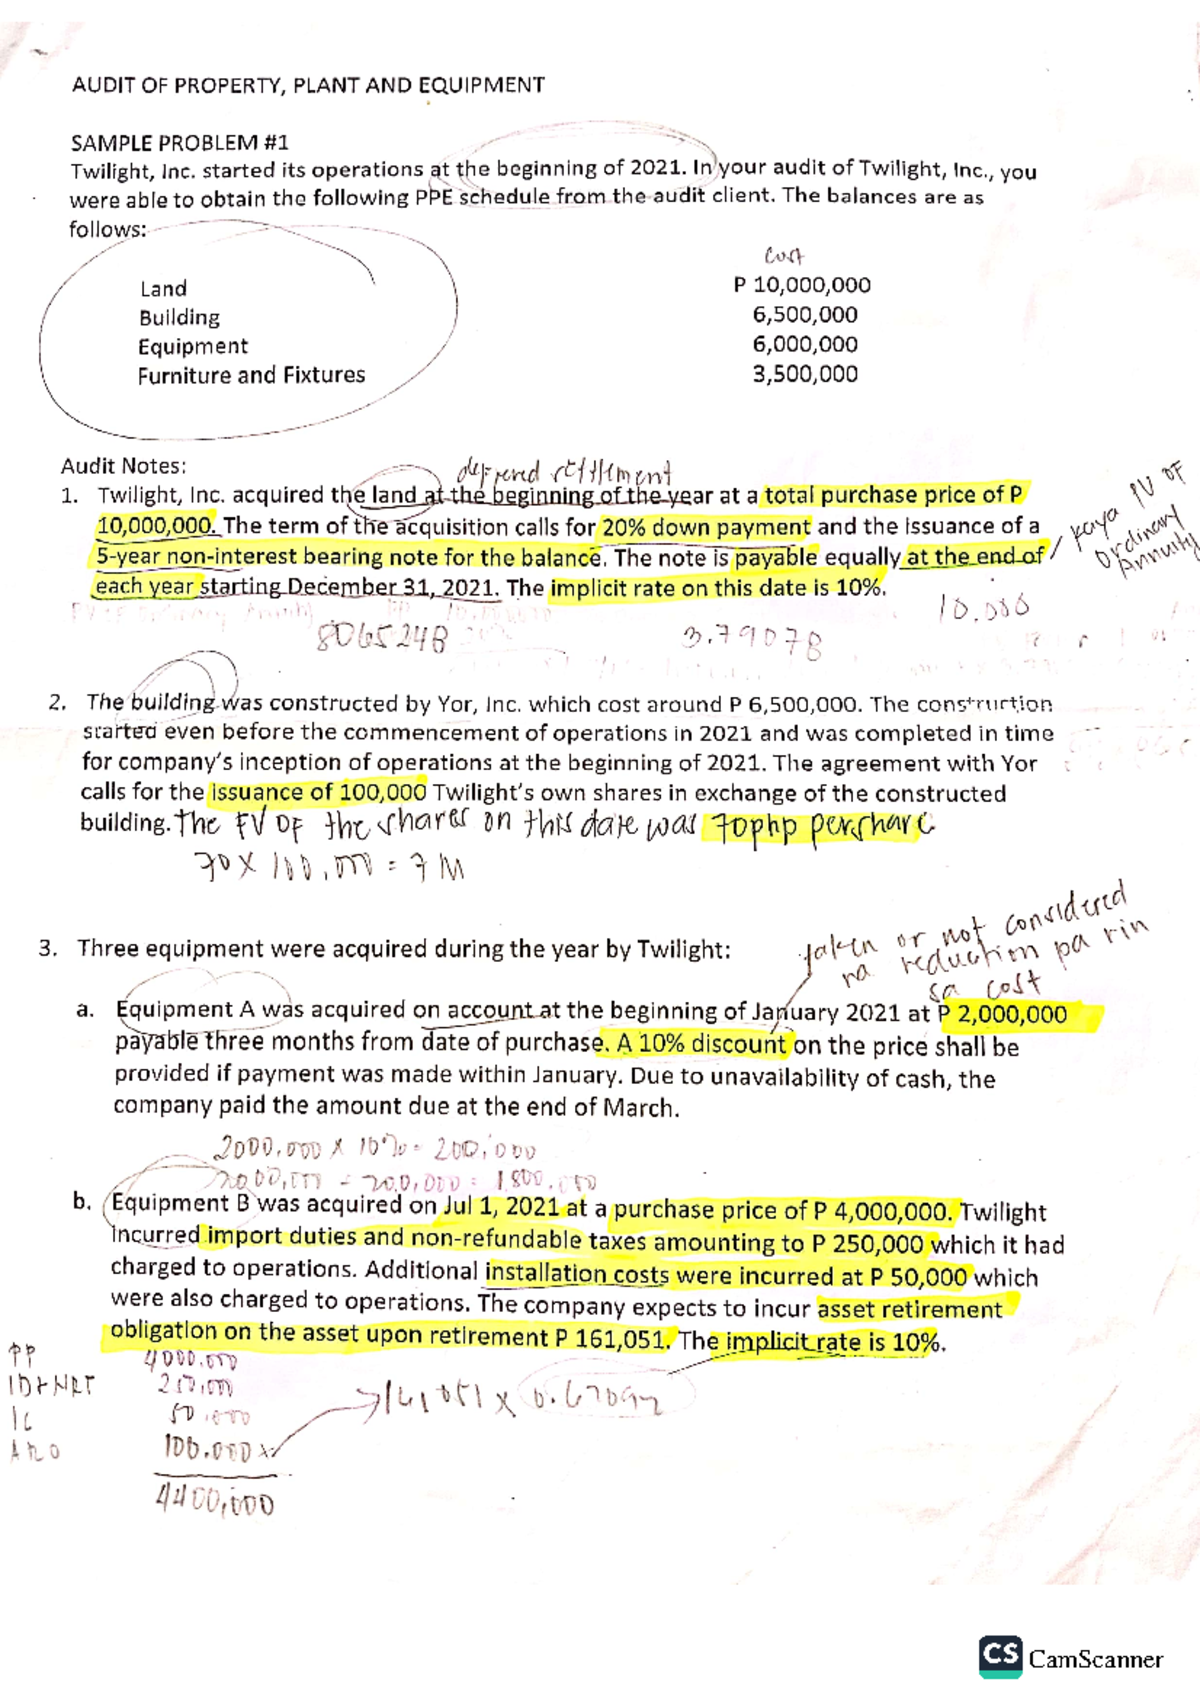 AUDIT OF PROPERTY, PLANT AND EQUIPMENT
SAMPLE PROBLEM #1
Twilight, Inc. started its operations at the beginning of 2021. In your audit of Twilight, Inc., you
were able to obtain the following PPE schedule from the audit client. The balances are as
follows:
Cost
Land P 10,000,000
Building 6,500,000
Equipment 6,000,000
Furniture and Fixtures 3,500,000
Audit Notes:
deffered settlement
1. Twilight, Inc. acquired the land at the beginning of the year at a total purchase price of P
10,000,000. The term of the acquisition calls for 20% down payment and the issuance of a
5-year non-interest bearing note for the balance. The note is payable equally at the end of
each year starting December 31, 2021. The implicit rate on this date is 10%.
kaya PV OF
Ordinary
Annuity
10.000
8065248 3.79078
2. The building was constructed by Yor, Inc. which cost around P 6,500,000. The construction
started even before the commencement of operations in 2021 and was completed in time
for company's inception of operations at the beginning of 2021. The agreement with Yor
calls for the issuance of 100,000 Twilight's own shares in exchange of the constructed
building. The FV OF the shares on this date was 70php pershare
70 X 100,000 = 7 M
3. Three equipment were acquired during the year by Twilight:
taken or not considered
na reduction pa rin
sa cost
a. Equipment A was acquired on account at the beginning of January 2021 at P 2,000,000
payable three months from date of purchase. A 10% discount on the price shall be
provided if payment was made within January. Due to unavailability of cash, the
company paid the amount due at the end of March.
2000,000 X 10% = 200,000
2000,000 - 200,000 = 1,800,000
b. Equipment B was acquired on Jul 1, 2021 at a purchase price of P 4,000,000. Twilight
incurred import duties and non-refundable taxes amounting to P 250,000 which it had
charged to operations. Additional installation costs were incurred at P 50,000 which
were also charged to operations. The company expects to incur asset retirement
obligation on the asset upon retirement P 161,051. The implicit rate is 10%.
PP 4000,000
ID+NRT 250,000
IC 50,000
ARO 100,000
161,051 x 0.62092
4400,000
CS CamScanner